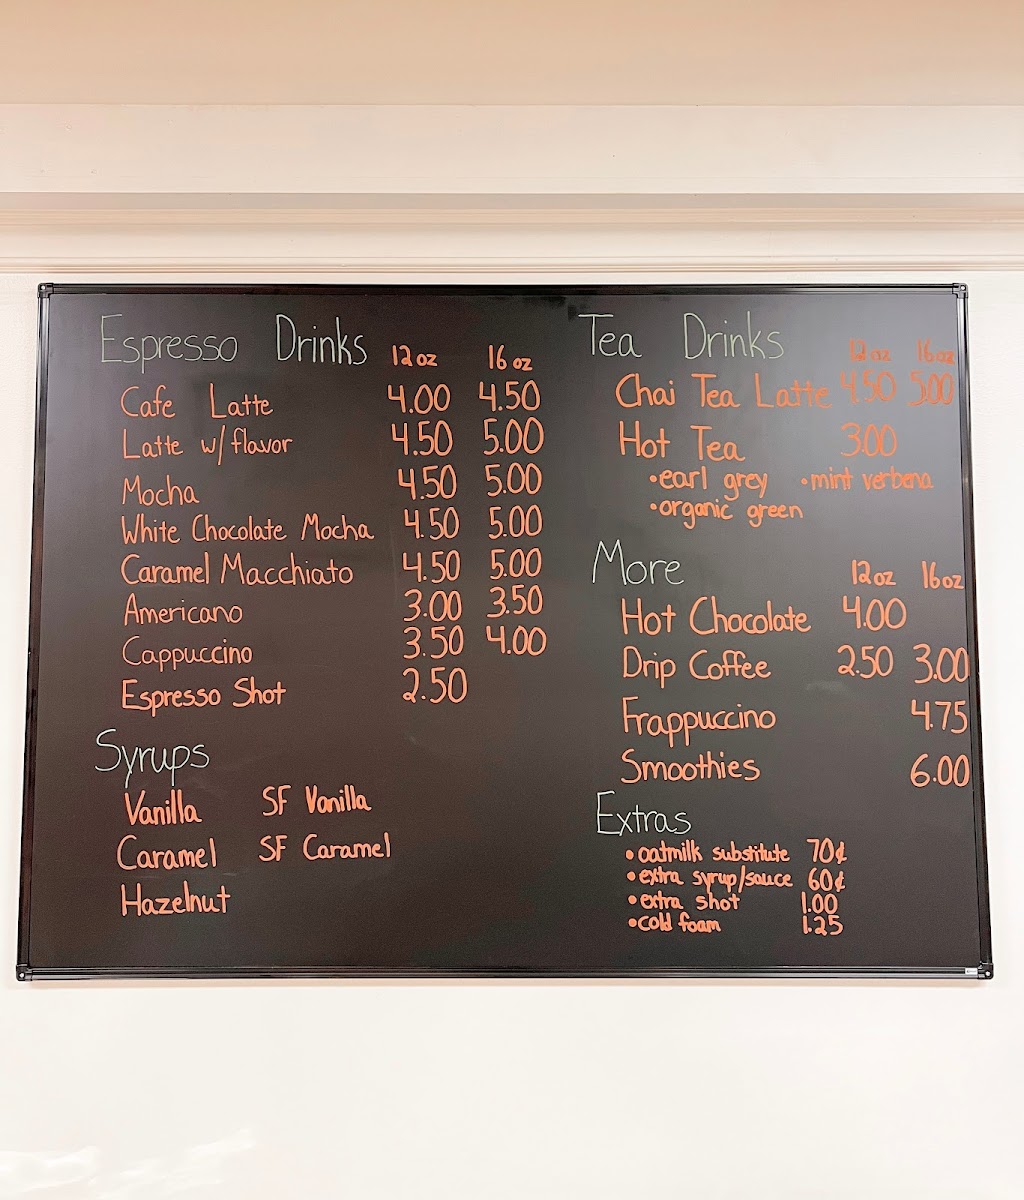 Espresso Drinks 12oz 16oz
Cafe Latte 4.00 4.50
Latte w/ flavor 4.50 5.00
Mocha 4.50 5.00
White Chocolate Mocha 4.50 5.00
Caramel Macchiato 4.50 5.00
Americano 3.00 3.50
Cappuccino 3.50 4.00
Espresso Shot 2.50
Syrups
Vanilla SF Vanilla
Caramel SF Caramel
Hazelnut
Tea Drinks 12oz 16oz
Chai Tea Latte 4.50 5.00
Hot Tea 3.00
•earl grey •mint verbena
•organic green
More 12oz 16oz
Hot Chocolate 4.00
Drip Coffee 2.50 3.00
Frappuccino 4.75
Smoothies 6.00
Extras
•oatmilk substitute 70¢
•extra syrup/sauce 60¢
•extra shot 1.00
•cold foam 1.25